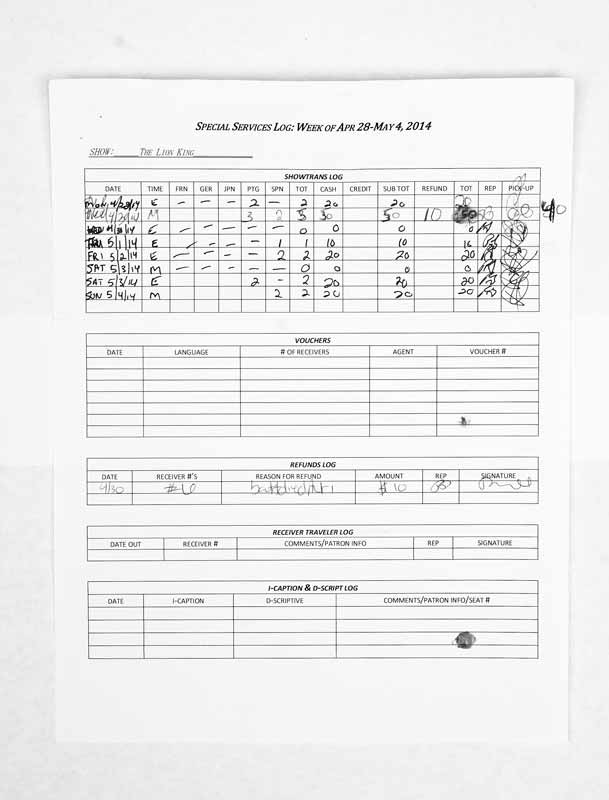 SPECIAL SERVICES LOG: WEEK OF APR 28-MAY 4, 2014
SHOW: THE LION KING
SHOWTRANS LOG
DATE TIME FRN GER JPN PTG SPN TOT CASH CREDIT SUB TOT REFUND TOT REP PICK-UP
E – – – 2 – 2 20 20 20
M 3 2 5 50 50 10 40
E – – – – – 0 0 0 0
THU 5/1/14 E – – – – 1 1 10 10 10
FRI 5/2/14 E – – – – 2 2 20 20 20
SAT 5/3/14 M – – – – – 0 0 0 0
SAT 5/3/14 E 2 – 2 20 20 20
SUN 5/4/14 M 2 2 20 20 20
VOUCHERS
DATE LANGUAGE # OF RECEIVERS AGENT VOUCHER #
REFUNDS LOG
DATE RECEIVER #'S REASON FOR REFUND AMOUNT REP SIGNATURE
4/30 #6 $10
RECEIVER TRAVELER LOG
DATE OUT RECEIVER # COMMENTS/PATRON INFO REP SIGNATURE
I-CAPTION & D-SCRIPT LOG
DATE I-CAPTION D-SCRIPTIVE COMMENTS/PATRON INFO/SEAT #